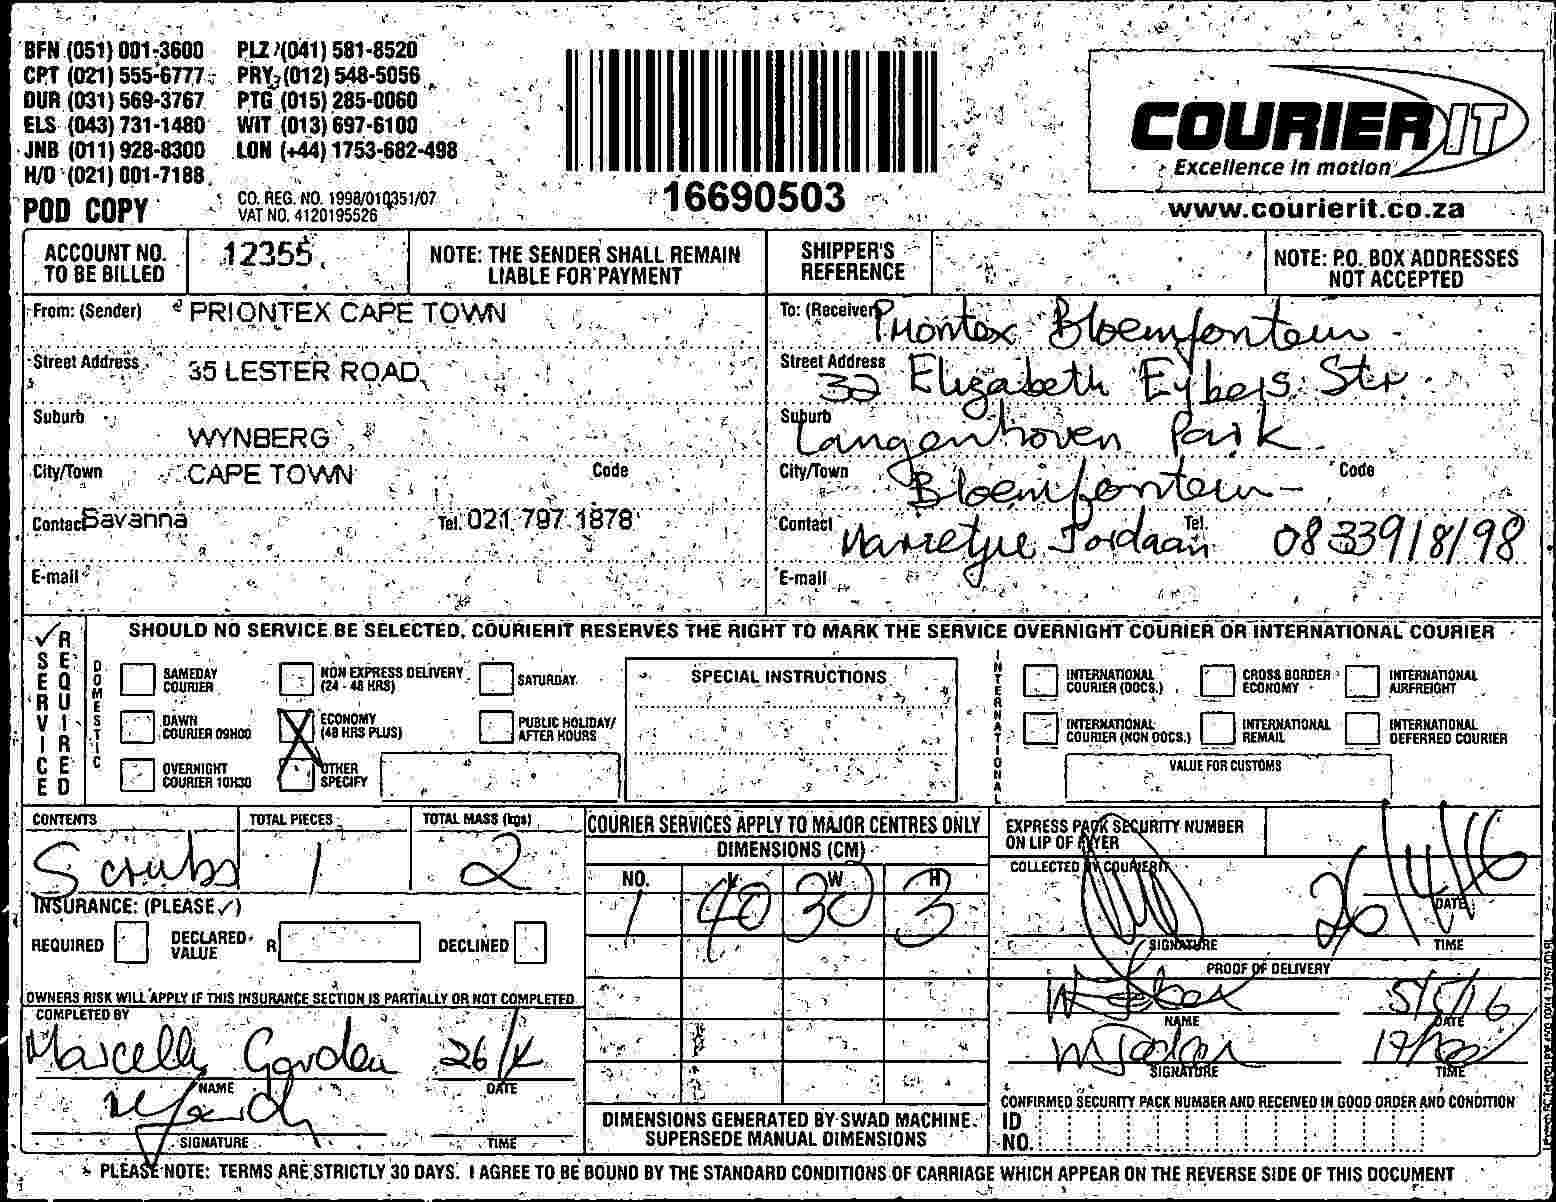 BFN (051) 001-3600 PLZ (041) 581-8520
CPT (021) 555-6777 PRY (012) 548-5056
DUR (031) 569-3767 PTG (015) 285-0060
ELS (043) 731-1480 WIT (013) 697-6100
JNB (011) 928-8300 LON (+44) 1753-682-498
H/O (021) 001-7188
CO. REG. NO. 1998/010351/07
POD COPY VAT NO. 4120195526
16690503
COURIER IT
Excellence in motion
www.courierit.co.za
ACCOUNT NO. TO BE BILLED 12355
NOTE: THE SENDER SHALL REMAIN LIABLE FOR PAYMENT
SHIPPER'S REFERENCE
NOTE: P.O. BOX ADDRESSES NOT ACCEPTED
From: (Sender) PRIONTEX CAPE TOWN
Street Address 35 LESTER ROAD
Suburb WYNBERG
City/Town CAPE TOWN Code
Contact Savanna Tel. 021 797 1878
E-mail
To: (Receiver) Priontex Bloemfontein
Street Address 32 Elizabeth Eybers Str
Suburb Langenhoven Park
City/Town Bloemfontein Code
Contact Marietjie Jordaan Tel. 0833918198
E-mail
✓ SERVICE REQUIRED
SHOULD NO SERVICE BE SELECTED, COURIERIT RESERVES THE RIGHT TO MARK THE SERVICE OVERNIGHT COURIER OR INTERNATIONAL COURIER
DOMESTIC
SAMEDAY COURIER
NON EXPRESS DELIVERY (24 - 48 HRS)
SATURDAY
DAWN COURIER 09H00
X ECONOMY (48 HRS PLUS)
PUBLIC HOLIDAY/ AFTER HOURS
OVERNIGHT COURIER 10H30
OTHER SPECIFY
SPECIAL INSTRUCTIONS
INTERNATIONAL
INTERNATIONAL COURIER (DOCS.)
CROSS BORDER ECONOMY
INTERNATIONAL AIRFREIGHT
INTERNATIONAL COURIER (NON DOCS.)
INTERNATIONAL REMAIL
INTERNATIONAL DEFERRED COURIER
VALUE FOR CUSTOMS
CONTENTS Scrubs
TOTAL PIECES 1
TOTAL MASS (kgs) 2
INSURANCE: (PLEASE ✓)
REQUIRED DECLARED VALUE R DECLINED
OWNERS RISK WILL APPLY IF THIS INSURANCE SECTION IS PARTIALLY OR NOT COMPLETED
COMPLETED BY
Marcelle Gorden 26/4
NAME DATE
SIGNATURE TIME
COURIER SERVICES APPLY TO MAJOR CENTRES ONLY
DIMENSIONS (CM)
NO. L W H
1 40 30 3
DIMENSIONS GENERATED BY SWAD MACHINE SUPERSEDE MANUAL DIMENSIONS
EXPRESS PACK SECURITY NUMBER ON LIP OF FLYER
COLLECTED BY COURIERIT
26/4/16
DATE
SIGNATURE TIME
PROOF OF DELIVERY
5/5/16
NAME DATE
SIGNATURE TIME
CONFIRMED SECURITY PACK NUMBER AND RECEIVED IN GOOD ORDER AND CONDITION
ID NO.
PLEASE NOTE: TERMS ARE STRICTLY 30 DAYS. I AGREE TO BE BOUND BY THE STANDARD CONDITIONS OF CARRIAGE WHICH APPEAR ON THE REVERSE SIDE OF THIS DOCUMENT